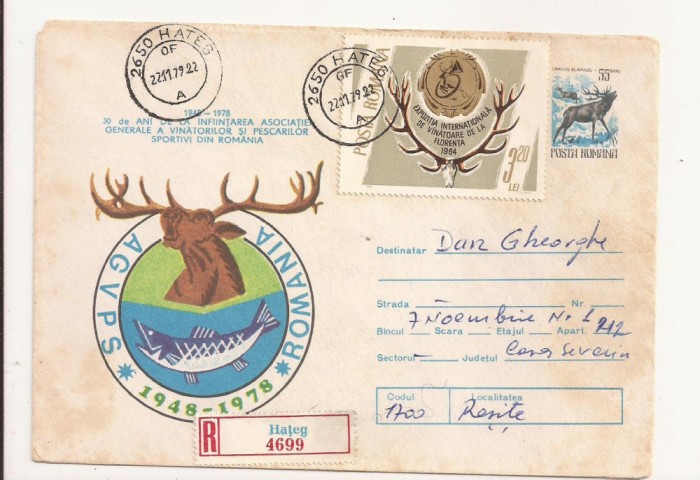 2650 HAȚEG
OF
22.11.79.22
A
2650 HAȚEG
OF
22.11.79.22
A
POSTA ROMANA
EXPOZITIA INTERNATIONALA
DE VINATOARE DE LA
FLORENTA
1964
3,20
LEI
CERVUS ELAPHUS
55 BANI
POSTA ROMANA
1948-1978
30 de ANI DE LA INFIINTAREA ASOCIATIEI
GENERALE A VINATORILOR ȘI PESCARILOR
SPORTIVI DIN ROMÂNIA
AGVPS ROMANIA
1948-1978
Destinatar Dan Gheorghe
Strada Nr.
7 Noembrie Nr. 1
Blocul Scara Etajul Apart. 212
Sectorul Județul Caraș Severin
Codul Localitatea
1700 Reșița
R Hațeg
4699